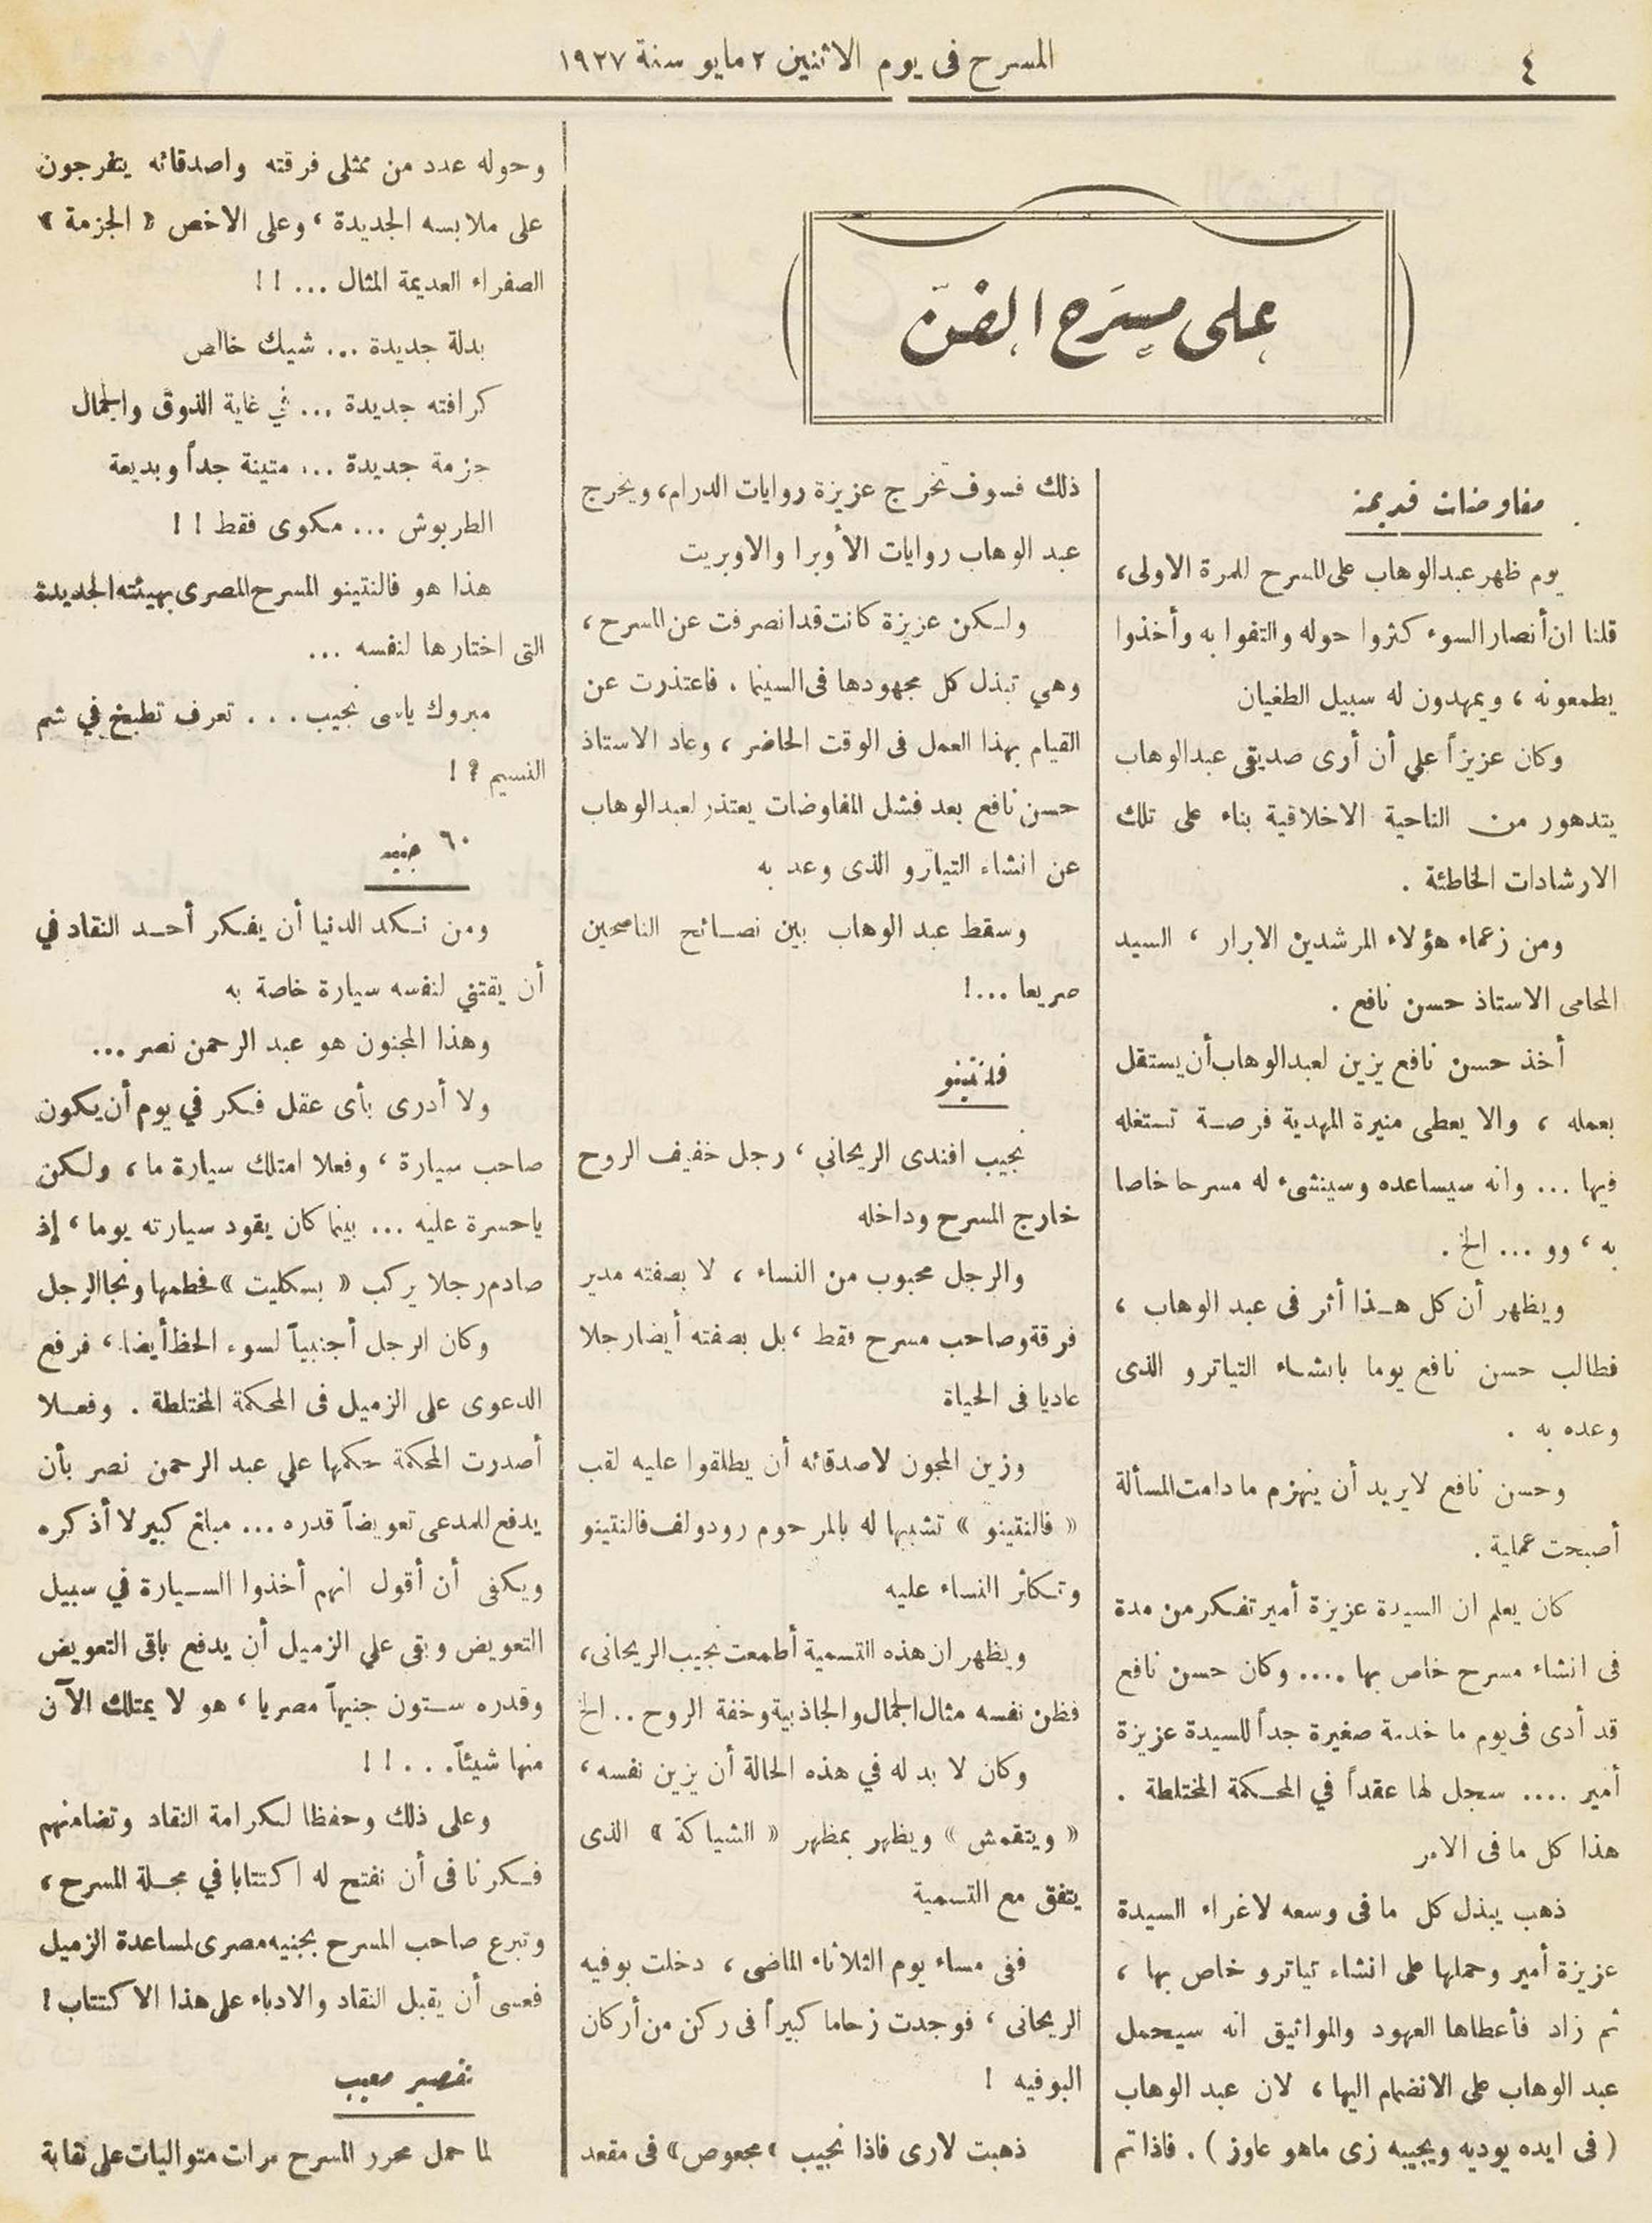 ٤
المسرح فى يوم الاثنين ٢ مايو سنة ١٩٢٧
على مسرح الفن
مفاوضات قديمة
يوم ظهر عبدالوهاب على المسرح للمرة الاولى،
قلنا ان أنصار السوء كثروا حوله والتفوا به وأخذوا
يطمعونه ، ويمهدون له سبيل الطغيان
وكان عزيزاً علي أن أرى صديقى عبدالوهاب
يتدهور من الناحية الاخلاقية بناء على تلك
الارشادات الخاطئة .
ومن زعماء هؤلاء المرشدين الابرار ، السيد
المحامى الاستاذ حسن نافع .
أخذ حسن نافع يزين لعبدالوهاب أن يستقل
بعمله ، والا يعطى منيرة المهدية فرصة تستغله
فيها ... وانه سيساعده وسينشىء له مسرحا خاصا
به ، وو ... الخ .
ويظهر أن كل هـذا أثر فى عبد الوهاب ،
فطالب حسن نافع يوما بانشاء التياترو الذى
وعده به .
وحسن نافع لايريد أن ينهزم مادامت المسألة
أصبحت عملية .
كان يعلم ان السيدة عزيزة أمير تفكر من مدة
فى انشاء مسرح خاص بها .... وكان حسن نافع
قد أدى فى يوم ما خدمة صغيرة جداً للسيدة عزيزة
أمير .... سجل لها عقداً في المحكمة المختلطة .
هذا كل ما فى الامر
ذهب يبذل كل ما فى وسعه لاغراء السيدة
عزيزة أمير وحملها على انشاء تياترو خاص بها ،
ثم زاد فأعطاها العهود والمواثيق انه سيحمل
عبد الوهاب على الانضمام اليها ، لان عبد الوهاب
( فى ايده يوديه ويجيبه زى ماهو عاوز ) . فاذا تم
ذلك فسوف تخرج عزيزة روايات الدرام، ويخرج
عبد الوهاب روايات الأوبرا والاوبريت
ولكن عزيزة كانت قد انصرفت عن المسرح ،
وهي تبذل كل مجهودها فى السينما . فاعتذرت عن
القيام بهذا العمل فى الوقت الحاضر ، وعاد الاستاذ
حسن نافع بعد فشل المفاوضات يعتذر لعبدالوهاب
عن انشاء التياترو الذى وعد به
وسقط عبد الوهاب بين نصائح الناصحين
صريعا ...!
فلنتينو
نجيب افندى الريحاني ، رجل خفيف الروح
خارج المسرح وداخله
والرجل محبوب من النساء ، لا بصفته مدير
فرقة وصاحب مسرح فقط ، بل بصفته أيضا رجلا
عاديا فى الحياة
وزين المجون لاصدقائه أن يطلقوا عليه لقب
« فالنتينو » تشبيها له بالمرحوم رودولف فالنتينو
وتكاثر النساء عليه
ويظهر ان هذه التسمية أطمعت نجيب الريحانى،
فظن نفسه مثال الجمال والجاذبية وخفة الروح .. الخ
وكان لا بد له في هذه الحالة أن يزين نفسه ،
« ويتقمش » ويظهر بمظهر « الشياكة » الذى
يتفق مع التسمية
ففى مساء يوم الثلاثاء الماضى ، دخلت بوفيه
الريحانى ، فوجدت زحاما كبيراً فى ركن من أركان
البوفيه !
ذهبت لارى فاذا نجيب «مجعوص» فى مقعد
وحوله عدد من ممثلى فرقته واصدقائه يتفرجون
على ملابسه الجديدة ، وعلى الاخص « الجزمة »
الصفراء العديمة المثال ... ! !
بدلة جديدة ... شيك خالص
كرافته جديدة ... في غاية الذوق والجمال
جزمة جديدة ... متينة جداً وبديعة
الطربوش ... مكوى فقط ! !
هذا هو فالنتينو المسرح المصرى بهيئته الجديدة
التى اختارها لنفسه ...
مبروك ياسى نجيب . . . تعرف تطبخ في شم
النسيم ؟ !
٦٠ جنيه
ومن نكد الدنيا أن يفكر أحد النقاد في
أن يقتني لنفسه سيارة خاصة به
وهذا المجنون هو عبد الرحمن نصر ...
ولا أدرى بأى عقل فكر في يوم أن يكون
صاحب سيارة ، وفعلا امتلك سيارة ما ، ولكن
ياحسرة عليه ... بينما كان يقود سيارته يوما ، إذ
صادم رجلا يركب « بسكليت » فحطمها ونجا الرجل
وكان الرجل أجنبياً لسوء الحظ أيضا ، فرفع
الدعوى على الزميل فى المحكمة المختلطة . وفعلا
أصدرت المحكمة حكمها علي عبد الرحمن نصر بأن
يدفع للمدعى تعويضاً قدره ... مبلغ كبير لا أذكره
ويكفى أن أقول انهم أخذوا السيارة في سبيل
التعويض وبقى علي الزميل أن يدفع باقى التعويض
وقدره ستون جنيهاً مصريا ، هو لا يمتلك الآن
منها شيئاً. . . ! !
وعلى ذلك وحفظا لكرامة النقاد وتضامنهم
فكرنا فى أن نفتح له اكتتابا في مجلة المسرح ،
وتبرع صاحب المسرح بجنيه مصرى لمساعدة الزميل
فعسى أن يقبل النقاد والادباء على هذا الاكتتاب !
تقصير معيب
لما حمل محرر المسرح مرات متواليات على نقابة